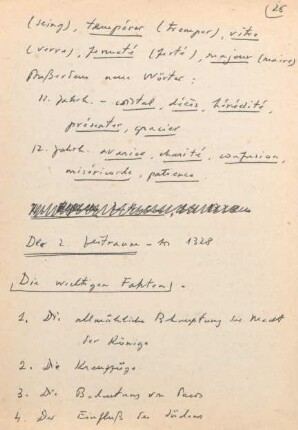 (26
(seing), tempérer (tremper), vitre
(verre), fermeté (ferté), majeur (maire)
Außerdem neue Wörter:
11. Jahrh. – cristal, décès, hérédité,
présenter, gracier
12. Jahrh. avarice, charité, confusion,
miséricorde, patience.
Der 2. Zeitraum – bis 1328
Die wichtigen Fakten.
1. Die allmähliche Behauptung der Macht
der Könige
2. Die Kreuzzüge
3. Die Bedeutung von Paris
4. Der Einfluß des Südens